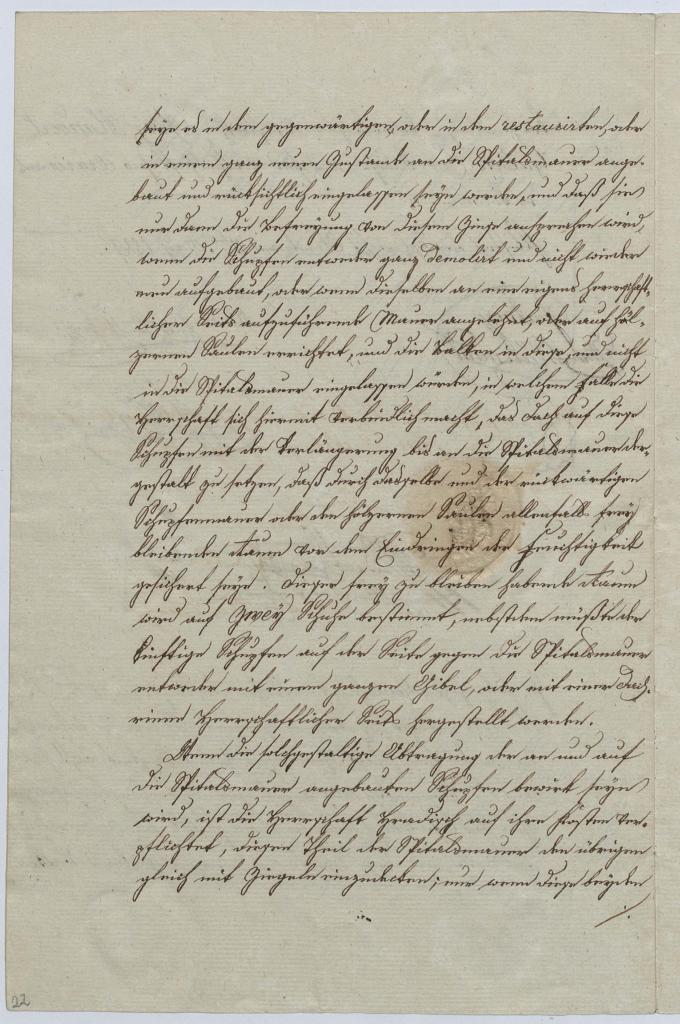 seye es in dem gegenwärtigen, oder in dem restaurirten, oder
in einem ganz neuen Zustande an die Spitalsmauer ange-
baut und rücksichtlich eingelassen seyn werde, und daß sie
nur dann die Befreyung von diesem Zinse ansprechen wird,
wenn die Schupfen entweder ganz demolirt und nicht wieder
neu aufgebaut, oder wenn dieselben an eine eigens herrschaft-
licher Seits aufzuführende Mauer angelehnt, oder auf höl-
zernen Säulen errichtet, und die Balken in diese, und nicht
in die Spitalsmauer eingelassen würden, in welchem Falle die
Herrschaft sich hiermit verbindlich macht, das Dach auf diese
Schupfen mit der Verlängerung bis an die Spitalsmauer der-
gestalt zu setzen, daß durch dasselbe und der rückwärtigen
Schupfenmauer oder den hölzernen Säulen allenfalls frey
bleibende Raum vor dem Eindringen der Feuchtigkeit
gesichert seye. Dieser frey zu bleiben habende Raum
wird auf zwey Schuhe bestimmt, nebstdem müßte der
künftige Schupfen auf der Seite gegen die Spitalsmauer
entweder mit einem ganzen Gibel, oder mit einer Dach-
rinne Herrschaftlicher Seits hergestellt werden.
Wenn die solchgestaltige Abtragung der an und auf
die Spitalsmauer angebauten Schupfen bewirkt seyn
wird, ist die Herrschaft Hradisch auf ihre Kosten ver-
pflichtet, diesen Theil der Spitalsmauer den übrigen
gleich mit Ziegeln einzudecken; nur wenn diese beyden
./.
22